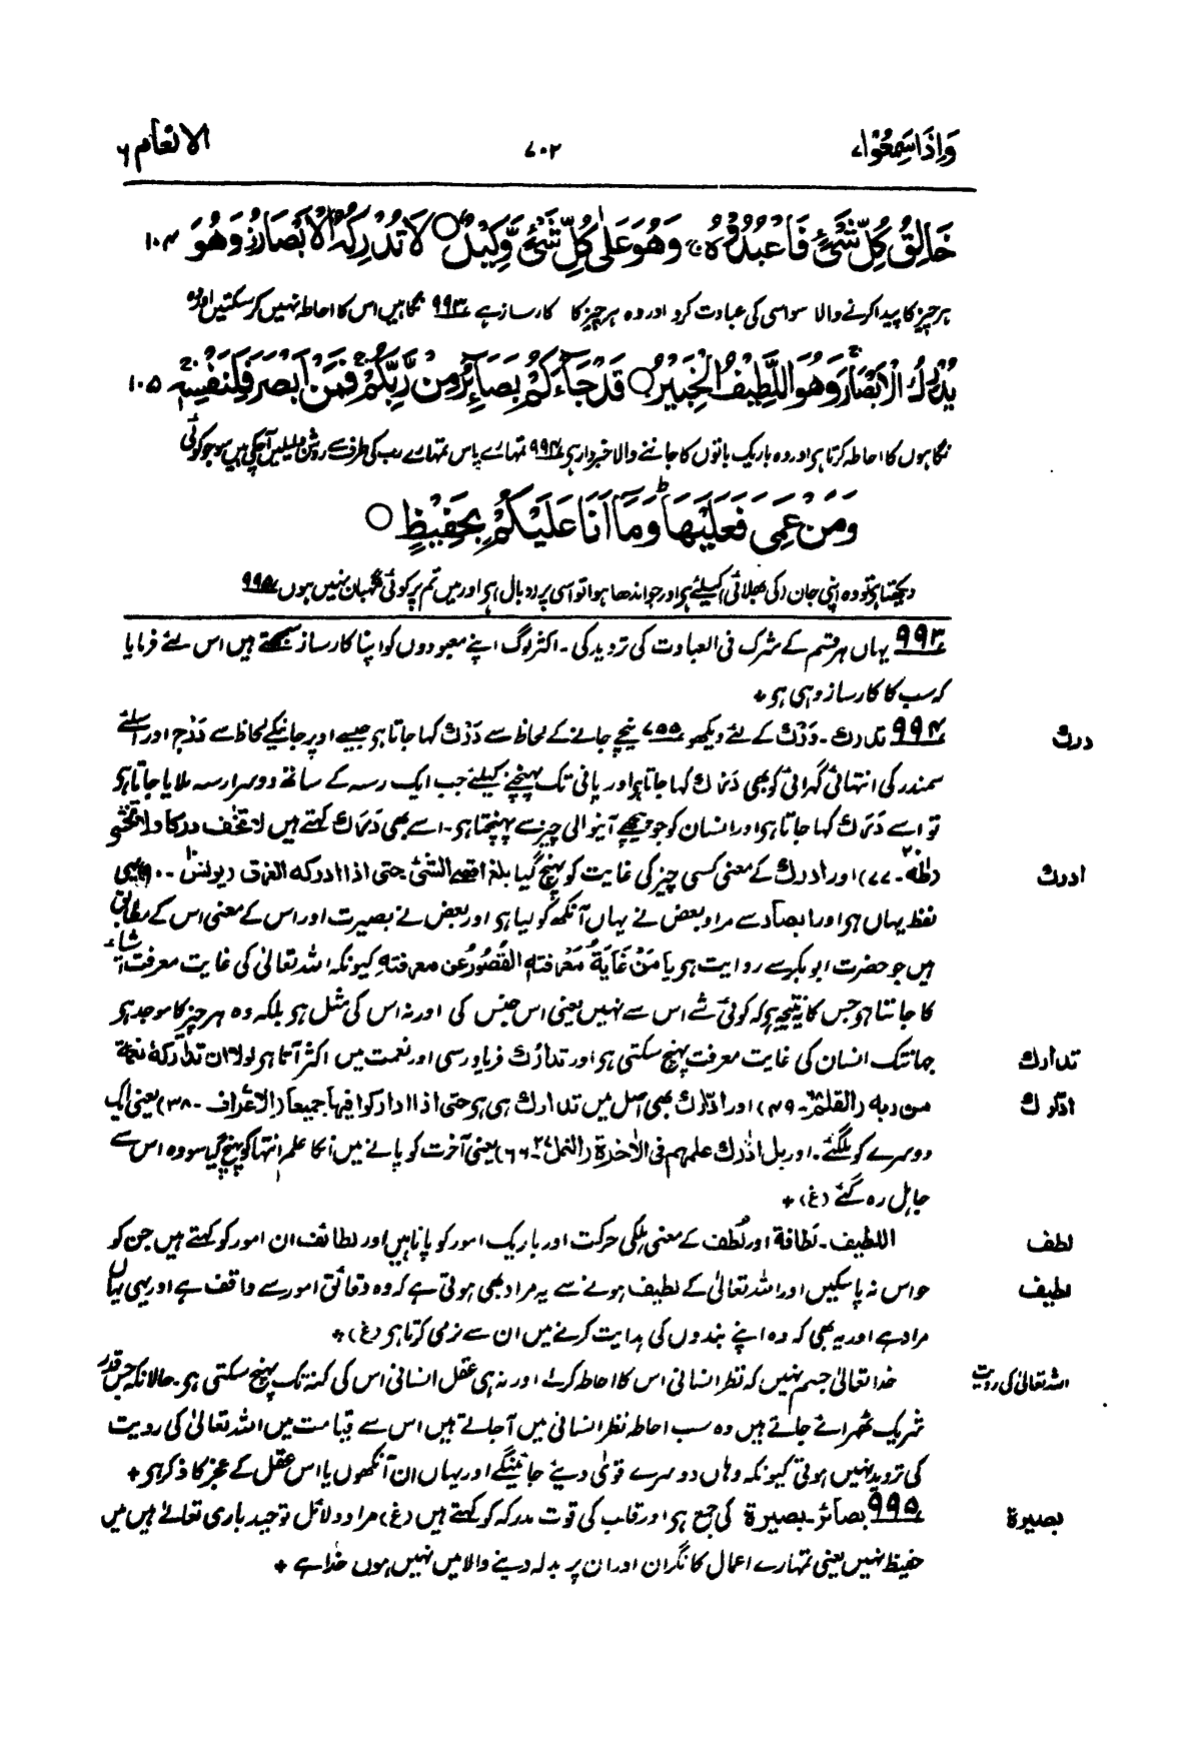 وَاِذَا سَمِعُوْا ۷
۷۰۲
الانعام ۶
خَالِقُ كُلِّ شَیْءٍ فَاعْبُدُوْهُ ۚ وَهُوَ عَلٰی كُلِّ شَیْءٍ وَّكِیْلٌ ○ لَا تُدْرِكُهُ الْاَبْصَارُ وَهُوَ ۱۰۴
ہر چیز کا پیدا کرنے والا سو اسی کی عبادت کرو اور وہ ہر چیز کا کارساز ہے ۹۹۳ نگاہیں اس کا احاطہ نہیں کرسکتیں اور وہ
یُدْرِكُ الْاَبْصَارَ وَهُوَ اللَّطِیْفُ الْخَبِیْرُ ○ قَدْ جَآءَكُمْ بَصَآئِرُ مِنْ رَّبِّكُمْ فَمَنْ اَبْصَرَ فَلِنَفْسِهٖ ۱۰۵
نگاہوں کا احاطہ کرتا ہے اور وہ باریک باتوں کا جاننے والا خبردار ہے ۹۹۴ تمہارے پاس تمہارے رب کی طرف سے روشن دلیلیں آچکی ہیں سو جو کوئی
وَمَنْ عَمِیَ فَعَلَیْهَا ؕ وَمَآ اَنَا عَلَیْكُمْ بِحَفِیْظٍ ○
دیکھتا ہے تو وہ اپنی جان (کی بھلائی) کیلئے ہے اور جو اندھا ہوا تو اسی پر (وبال) ہے اور میں تم پر کوئی نگہبان نہیں ہوں ۹۹۵
۹۹۳ یہاں ہر قسم کے شرک فی العبادت کی تردید کی۔ اکثر لوگ اپنے معبودوں کو اپنا کارساز سمجھتے ہیں اس لئے فرمایا
کہ سب کا کارساز وہی ہو +
درك
۹۹۴ تدرك۔ دَرْك کے لئے دیکھو ۷۵۵ نیچے جانے کے لحاظ سے دَرْك کہا جاتا ہو جیسے اوپر جانیکے لحاظ سے دَرَج اور اسلئے
سمندر کی انتہائی گہرائی کو بھی دَرَك کہا جاتا ہو اور پانی تک پہنچنے کیلئے جب ایک رسہ کے ساتھ دوسرا رسہ ملایا جاتا ہو
تو اسے دَرَك کہا جاتا ہو اور انسان کو جو پیچھے آنیوالی چیز سے پہنچتا ہو۔ اسے بھی دَرَك کہتے ہیں لا تخٰف درکا ولا تخشٰی
ادرك
(طٰهٰ ۲۰۔ ۷۷) اور ادرك کے معنی کسی چیز کی غایت کو پہنچ گیا بلغ اقصے الشئ حتی اذا ادركه الغرق (یونس ۱۰۔ ۹۰) یہی
لفظ یہاں ہو اور ابصار سے مراد بعض نے یہاں آنکھ کو لیا ہو اور بعض نے بصیرت اور اس کے معنی اس کے مطابق
ہیں جو حضرت ابوبکر سے روایت ہو یا مَنْ غَایَةُ مَعْرفتهِ القُصُوْرُ عن معرفتهِ کیونکہ اللہ تعالیٰ کی غایت معرفت اشیاء
کا جاننا ہو جس کا نتیجہ ہو کہ کوئی شے اس سے نہیں یعنی اس جنس کی اور نہ اس کی مثل ہو بلکہ وہ ہر چیز کا موجد ہو
تدارك
جہانتک انسان کی غایت معرفت پہنچ سکتی ہو اور تدارُك فریادرسی اور نعمت میں اکثر آتا ہو لولا ان تدارکهٗ نعمة
ادّارك
من ربه (القلم ۶۸۔ ۴۹) اور ادّارك بھی اصل میں تدارك ہی ہو حتی اذا ادارکوا فیها جمیعا (الاعراف ۷۔ ۳۸) یعنی ایک
دوسرے کو مل گئے۔ اور بل ادّٰرك علمهم فی الاٰخرة (النمل ۲۷۔ ۶۶) یعنی آخرت کو پانے میں انکا علم انتہا کو پہنچ گیا سو وہ اس سے
جاہل رہ گئے (غ) +
لطف
اللطیف۔ لَطَافة اور لُطْف کے معنی ہلکی حرکت اور باریک امور کو پانا ہیں اور لطائف ان امور کو کہتے ہیں جن کو
لطیف
حواس نہ پاسکیں اور اللہ تعالیٰ کے لطیف ہونے سے یہ مراد بھی ہوتی ہے کہ وہ دقائق امور سے واقف ہے اور یہی یہاں
مراد ہے اور یہ بھی کہ وہ اپنے بندوں کی ہدایت کرنے میں ان سے نرمی کرتا ہو (غ) +
اللہ تعالیٰ کی رویت
خدا تعالیٰ جسم نہیں کہ نظر انسانی اس کا احاطہ کرلے اور نہ ہی عقل انسانی اس کی کنہ تک پہنچ سکتی ہو۔ حالانکہ جس قدر
شریک ٹھہرائے جاتے ہیں وہ سب احاطہ نظر انسانی میں آجاتے ہیں اس سے قیامت میں اللہ تعالیٰ کی رویت
کی تردید نہیں ہوتی کیونکہ وہاں دوسرے قویٰ دیئے جائینگے اور یہاں ان آنکھوں یا اس عقل کے عجز کا ذکر ہو +
بصیرة
۹۹۵ بصائر۔ بصیرة کی جمع ہو اور قلب کی قوت مدرکہ کو کہتے ہیں (غ) مراد دلائل توحید باری تعالےٰ ہیں میں
حفیظ نہیں یعنی تمہارے اعمال کا نگران اور ان پر بدلہ دینے والا میں نہیں ہوں خدا ہے +